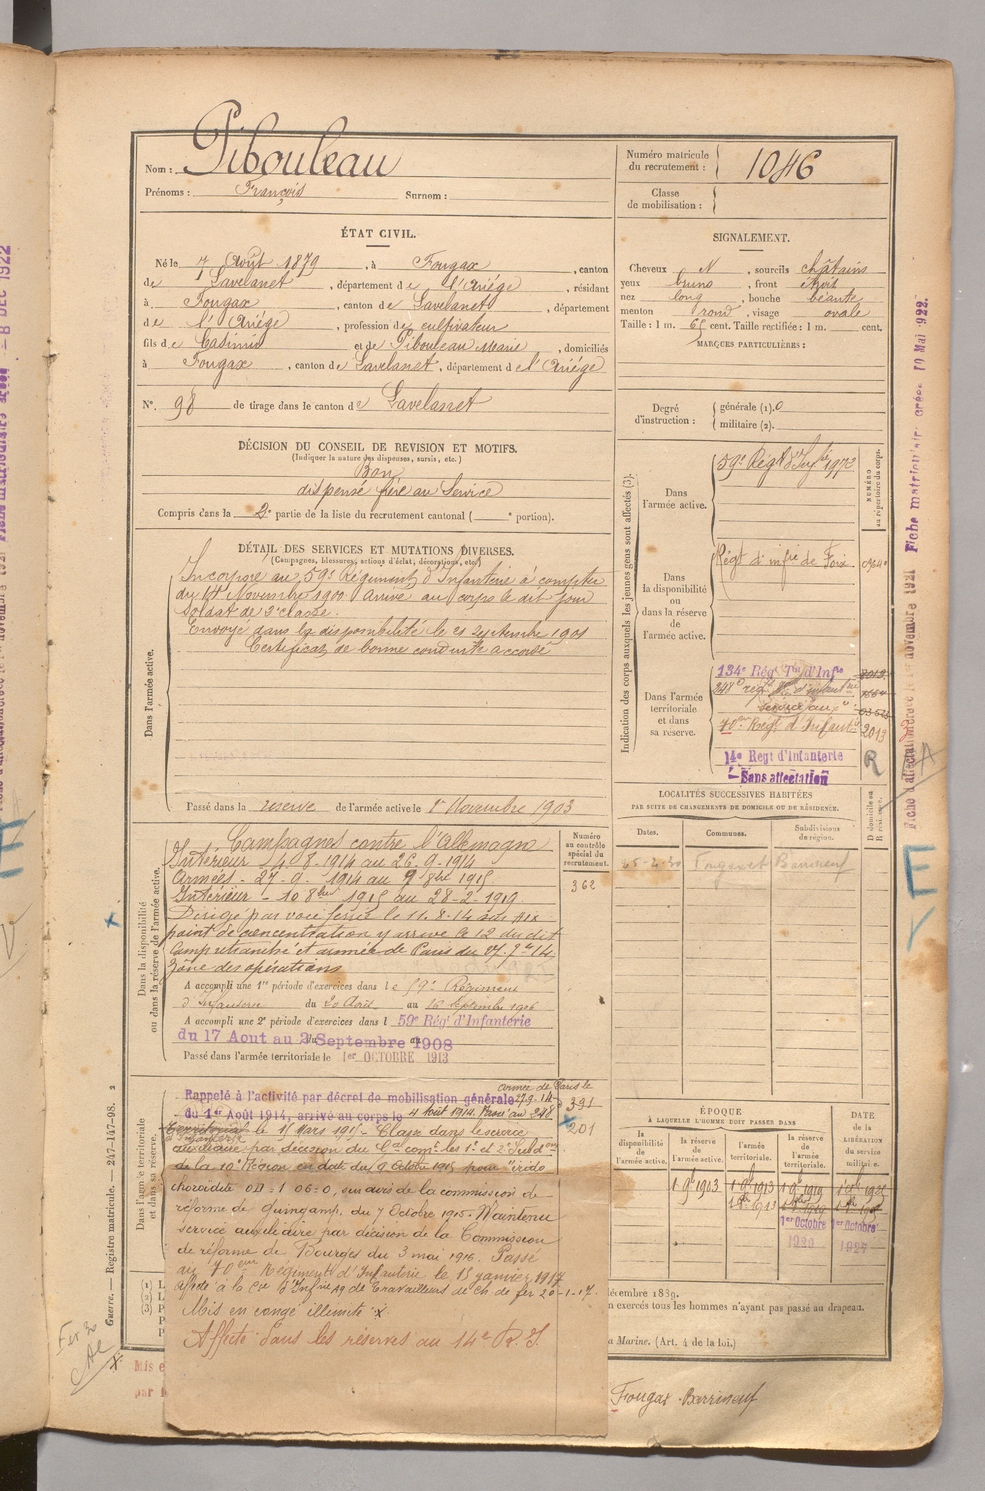 Nom : Pibouleau
Prénoms : François Surnom :
Numéro matricule du recrutement : 1046
Classe de mobilisation :
ÉTAT CIVIL.
Né le 7 Août 1879, à Fougax, canton
de Lavelanet, département de l'Ariége, résidant
à Fougax, canton de Lavelanet, département
de l'Ariége, profession de cultivateur
fils de Casimir et de Pibouleau Marie, domiciliés
à Fougax, canton de Lavelanet, département de l'Ariége
N°. 98 de tirage dans le canton de Lavelanet
SIGNALEMENT.
Cheveux N, sourcils châtains
yeux bruns, front étroit
nez long, bouche béante
menton rond, visage ovale
Taille : 1 m. 65 cent. Taille rectifiée : 1 m. cent.
MARQUES PARTICULIÈRES :
Degré d'instruction : générale (1). 0
militaire (2).
DÉCISION DU CONSEIL DE REVISION ET MOTIFS.
(Indiquer la nature des dispenses, sursis, etc.)
Bon
dispensé frère au Service
Compris dans la 2e partie de la liste du recrutement cantonal ( e portion).
DÉTAIL DES SERVICES ET MUTATIONS DIVERSES.
(Campagnes, blessures, actions d'éclat, décorations, etc.)
Dans l'armée active.
Incorporé au 59e Régiment d'Infanterie à compter
du 14 Novembre 1900. Arrivé au corps le dit jour
Soldat de 2e classe.
Envoyé dans la disponibilité le 21 septembre 1901
Certificat de bonne conduite accordé
Passé dans la réserve de l'armée active le 1er Novembre 1903
Indication des corps auxquels les jeunes gens sont affectés (3).
NUMÉRO au répertoire du corps.
Dans l'armée active.
59e Régt d'Infie
Dans la disponibilité ou dans la réserve de l'armée active.
Régt d'infie de Foix.
Dans l'armée territoriale et dans sa réserve.
134e Régt Tal d'Infie
248e régt d'infanterie
service aux.
70e Régt d'Infanterie 2013
14e Regt d'Infanterie
Sans affectation
R
LOCALITÉS SUCCESSIVES HABITÉES
PAR SUITE DE CHANGEMENTS DE DOMICILE OU DE RÉSIDENCE.
Dates. Communes. Subdivisions de région. D domicile ou R résidence.
Fougax et Barrineuf
Dans la disponibilité ou dans la réserve de l'armée active.
Numéro au contrôle spécial du recrutement.
362
Campagnes contre l'Allemagne
Intérieur 4-8-1914 au 26-9-1914
Armées - 27-9-1914 au 9 8bre 1915
Intérieur - 10 8bre 1915 au 28-2-1919
Dirigé par voie ferrée le 11-8-14 sur
point de concentration y arrivé le 12 du dit
Camp retranché et armée de Paris du
Zône des opérations
A accompli une 1re période d'exercices dans le 59e Régiment
d'Infanterie du 20 Août au 16 Septembre 1906
A accompli une 2e période d'exercices dans l 59e Régt d'Infanterie
du 17 Aout au 2 Septembre 1908
Passé dans l'armée territoriale le 1er OCTOBRE 1913
Dans l'armée territoriale et dans sa réserve.
armée de Paris le
Rappelé à l'activité par décret de mobilisation générale 27-9-14
du 1er Août 1914, arrivé au corps le 4 Août 1914. Passé au 248e
Territorial le 15 Mars 1915 - Classé dans le service
d'Infanterie
auxiliaire par décision du Gal comt les 1e et 2e Subdons
de la 10e Région en date du 9 Octobre 1915 pour irido
choroïdite OD = 1 OG = 0, sur avis de la commission de
réforme de Guingamp, du 7 Octobre 1915 - Maintenu
service auxiliaire par décision de la Commission
de réforme de Bourges du 3 mai 1916. Passé
au 70ème Régiment d'Infanterie le 15 janvier 1917
Affecté à la Cie de Travailleurs de ch. de fer 20-1-17.
Mis en congé illimité
Affecté dans les réserves au 14e R. I.
391
201
ÉPOQUE
À LAQUELLE L'HOMME DOIT PASSER DANS
la disponibilité de l'armée active. la réserve de l'armée active. l'armée territoriale. la réserve de l'armée territoriale.
DATE de la LIBÉRATION du service militaire.
1er 9bre 1903
1er Octobre 1920
1er Octobre 1927
décembre 1889.
n exercés tous les hommes n'ayant pas passé au drapeau.
a Marine. (Art. 4 de la loi.)
Fougax-Barrineuf
Guerre. — Registre matricule. — 247-147-98. 2
(1) L
(2) L
(3) P
Mis e
par
Fiche matriculaire créée 10 Mai 1922.
8 DEC 1922